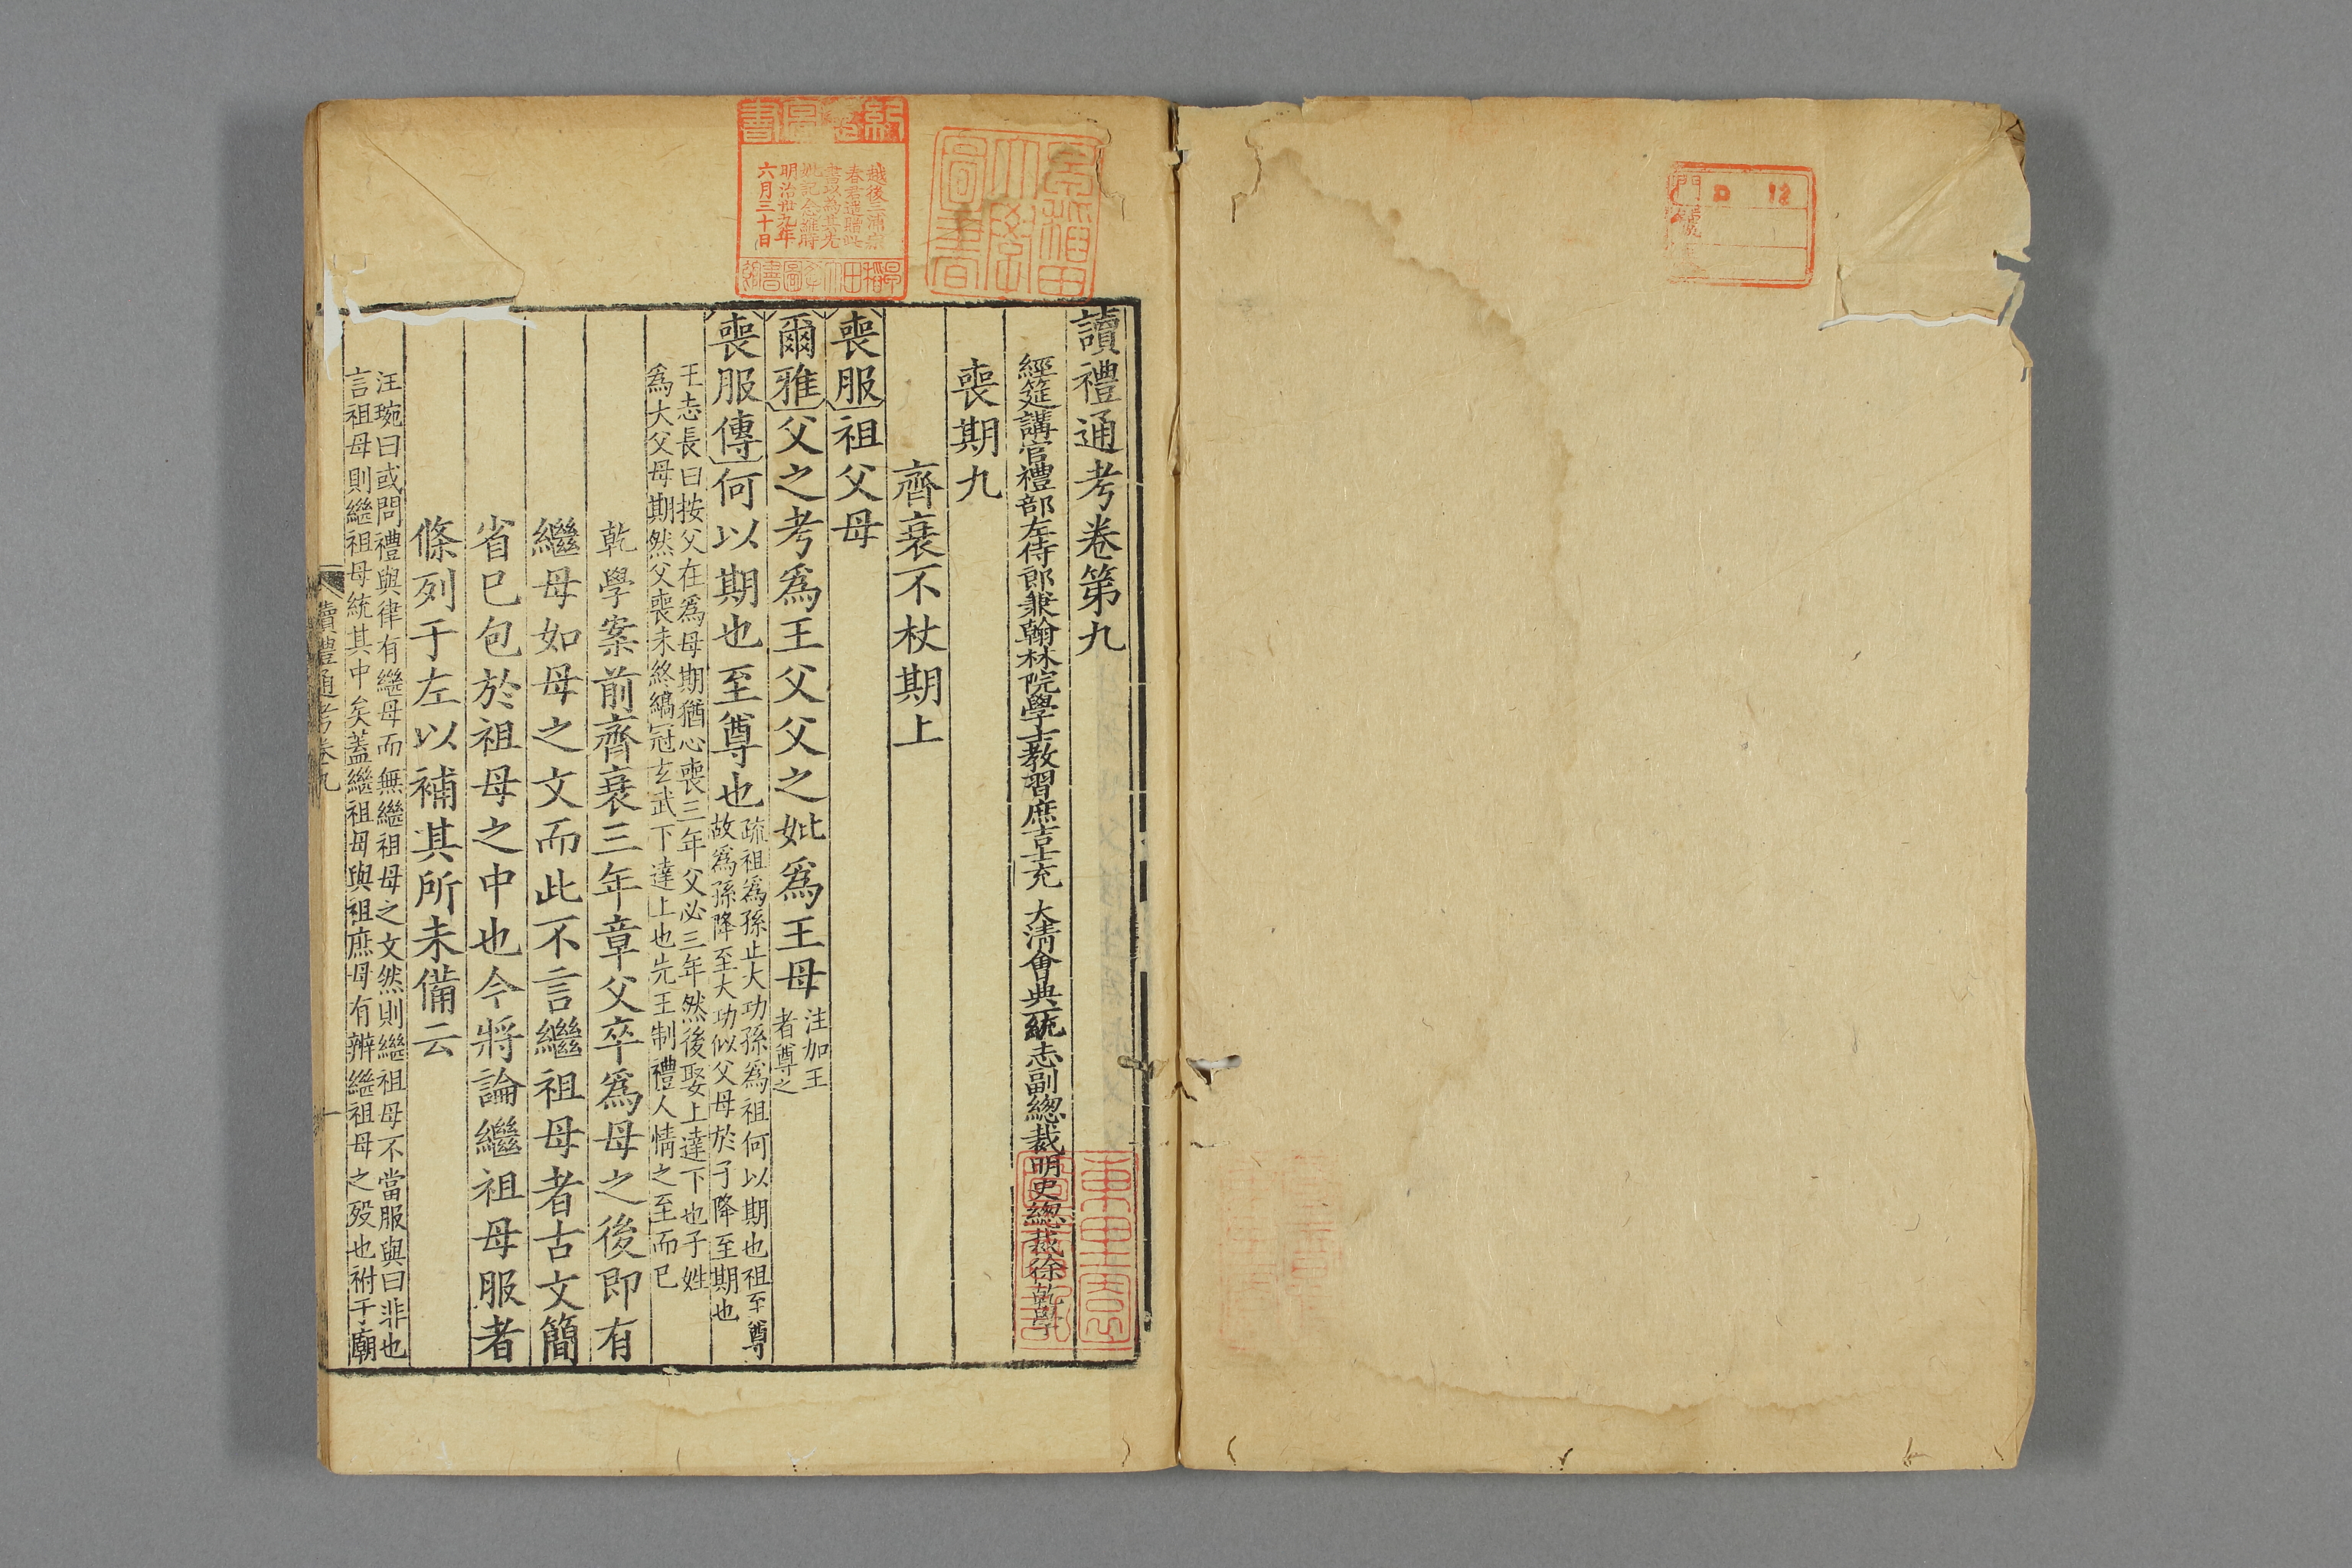 讀禮通考卷第九
經筵講官禮部左侍郎兼翰林院學士教習庶吉士充 大清會典一統志副總裁明史總裁徐乾學
喪期九
齊衰不杖期上
喪服祖父母
爾雅父之考爲王父父之妣爲王母注加王
者尊之
喪服傳何以期也至尊也疏祖爲孫止大功孫爲祖何以期也祖至尊
故爲孫降至大功似父母於子降至期也
王志長曰按父在爲母期猶心喪三年父必三年然後娶上達下也子姓
爲大父母期然父喪未終縞冠玄武下達上也先王制禮人情之至而已
乾學案前齊衰三年章父卒爲母之後即有
繼母如母之文而此不言繼祖母者古文簡
省已包於祖母之中也今將論繼祖母服者
條列于左以補其所未備云
汪琬曰或問禮與律有繼母而無繼祖母之文然則繼祖母不當服與曰非也
言祖母則繼祖母統其中矣蓋繼祖母與祖庶母有辨繼祖母之殁也祔于廟
讀禮通考卷九
一
越後三浦宗
春君遺贈此
書以為其先
妣記念維時
明治卅九年
六月三十日
門
號